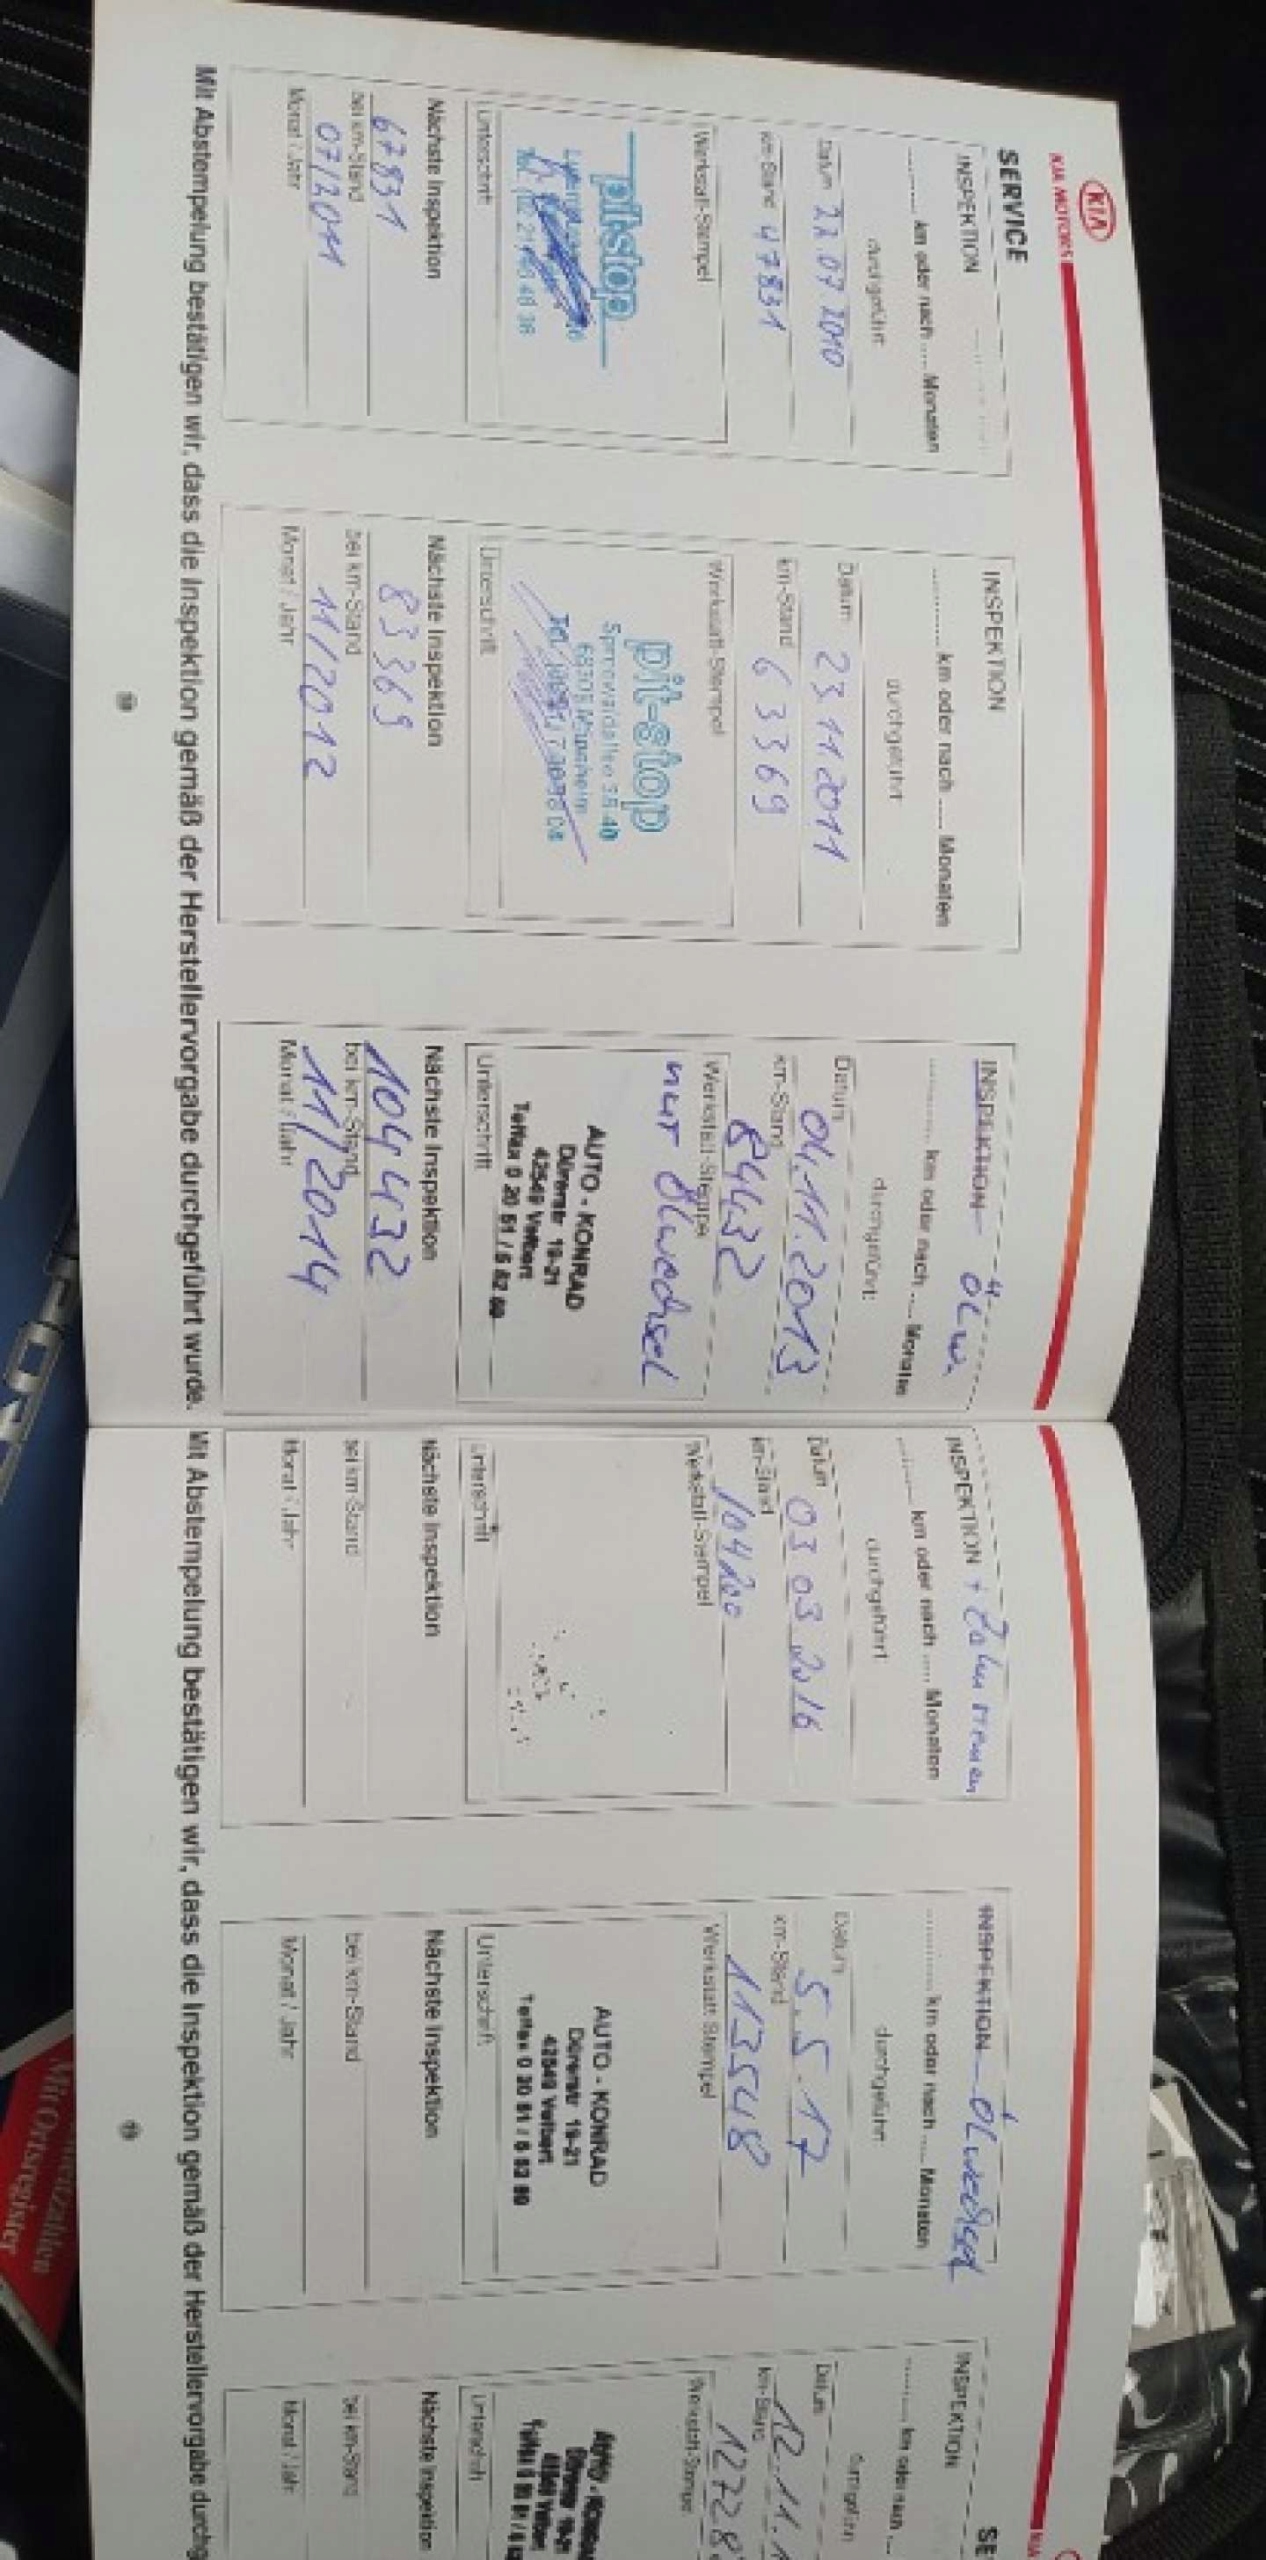 KIA
KIA MOTORS
SERVICE
INSPEKTION
......... km oder nach .... Monaten
durchgeführt
Datum 22.07 2010
km-Stand 47831
Werkstatt-Stempel
pitstop
Unterschrift
Nächste Inspektion
67831
bei km-Stand
07/2011
Monat / Jahr
INSPEKTION
......... km oder nach .... Monaten
durchgeführt
Datum 23 11 2011
km-Stand 63369
Werkstatt-Stempel
pit-stop
Unterschrift
Nächste Inspektion
83369
bei km-Stand
11/2012
Monat / Jahr
INSPEKTION Ölw.
......... km oder nach .... Monaten
durchgeführt:
Datum 04.11.2013
km-Stand 84432
Werkstatt-Stempel
nur Ölwechsel
AUTO - KONRAD
Dürerstr 19-21
42549 Velbert
Unterschrift
Nächste Inspektion
104432
bei km-Stand
11/2014
Monat / Jahr
Mit Abstempelung bestätigen wir, dass die Inspektion gemäß der Herstellervorgabe durchgeführt wurde.
INSPEKTION + Zahnriemen
......... km oder nach .... Monaten
durchgeführt
Datum 03 03 2016
km-Stand
Werkstatt-Stempel
Unterschrift
Nächste Inspektion
bei km-Stand
Monat / Jahr
INSPEKTION Ölwechsel
......... km oder nach .... Monaten
durchgeführt
Datum 5.5.17
km-Stand 113548
Werkstatt-Stempel
AUTO - KONRAD
Dürerstr 19-21
42549 Velbert
Unterschrift
Nächste Inspektion
bei km-Stand
Monat / Jahr
SE
INSPEKTION
......... km oder nach ....
durchgeführt
Datum 12.11.1
km-Stand 12728
Werkstatt-Stempel
Unterschrift
Nächste Inspektion
bei km-Stand
Monat / Jahr
Mit Abstempelung bestätigen wir, dass die Inspektion gemäß der Herstellervorgabe durchg
Mit Ortsregister